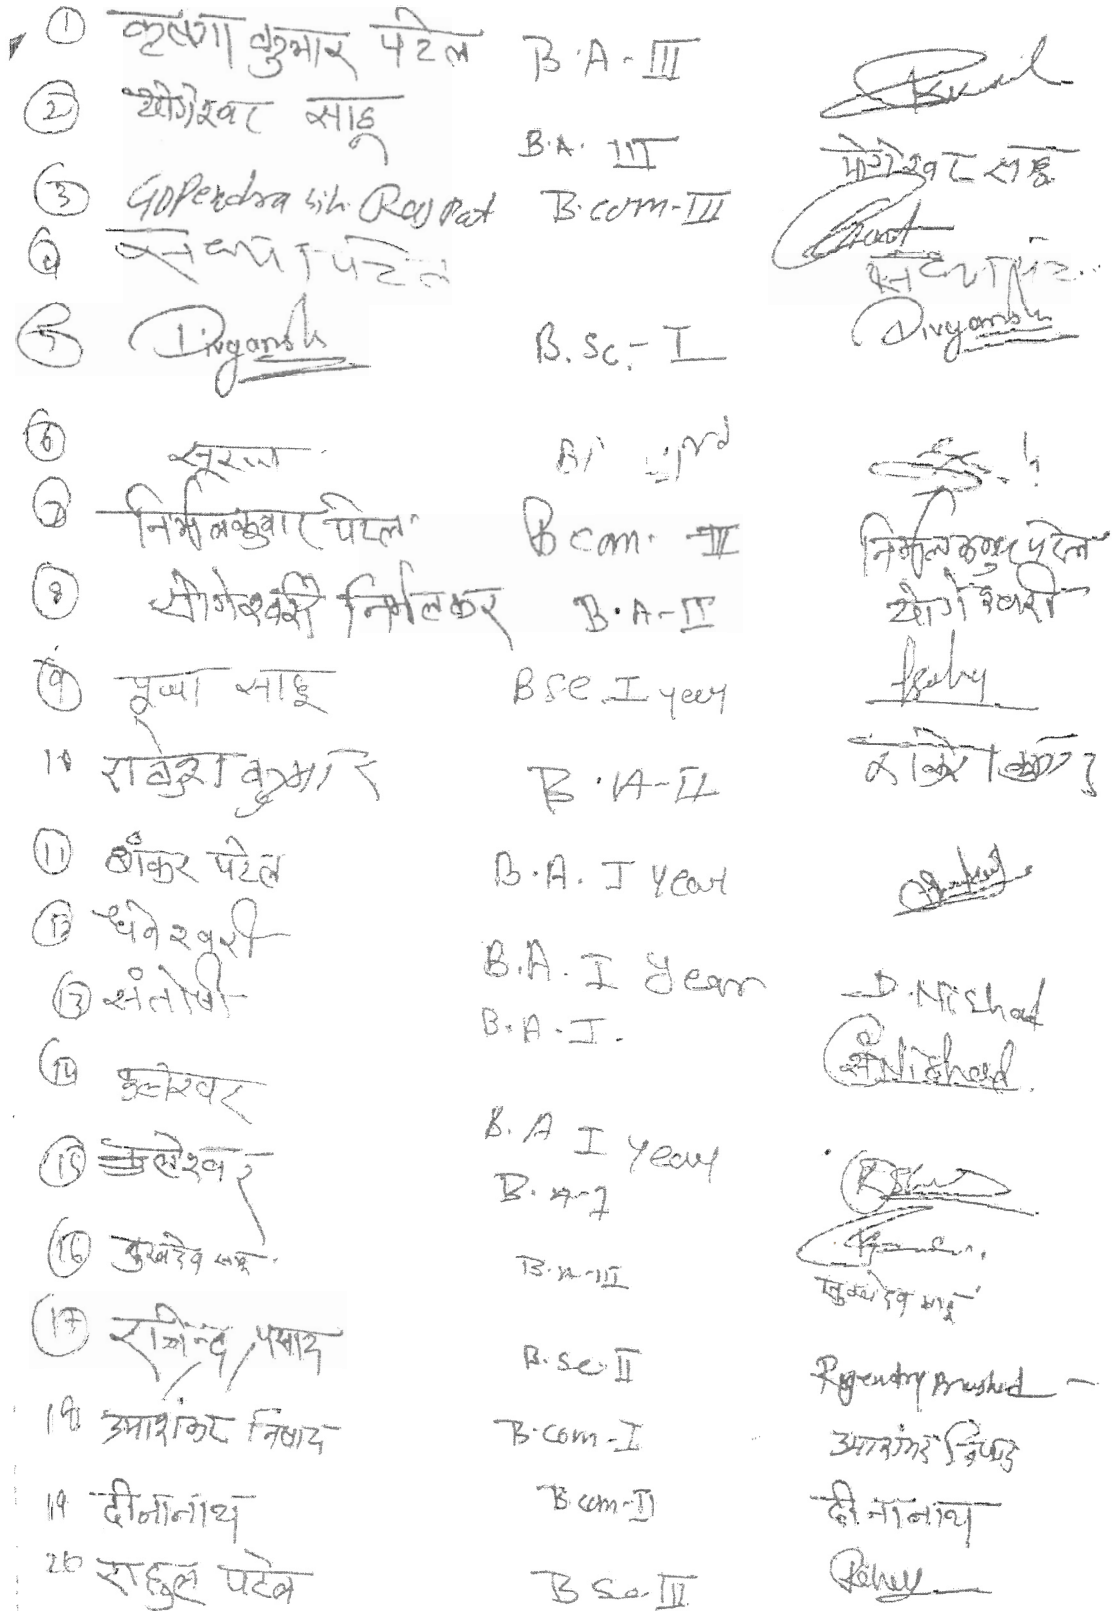 ① कृष्णा कुमार पटेल B.A-III
② योगेश्वर साहू B.A. III योगेश्वर साहू
③ Gopendra Rajpat B.com-III
④ सन्ध्या पटेल सन्ध्या
⑤ Divyansh B.Sc.-I Divyansh
⑥ सूरज
⑦ निर्मलकुमार पटेल B com. III निर्मल कुमार पटेल
⑧ योगेश्वरी निर्मलकर B.A-II योगेश्वरी
⑨ पूजा साहू BSC. I year
10 राकेश कुमार B.A-II राकेश कुमार
⑪ शंकर पटेल B.A. I year
⑫ धनेश्वरी B.A. I year D.Nishad
⑬ संतोषी B.A-I. Nishad
⑭ B.A I year
⑮ कुलेश्वर B.A-I
⑯ सुखदेव साहू B.A-III सुखदेव साहू
⑰ राजेन्द्र प्रसाद B.Sc II Rajendra Prashad
18 उमाशंकर निषाद B.com-I उमाशंकर निषाद
19 दीनानाथ B.com-II दीनानाथ
20 राहुल पटेल B Sc III